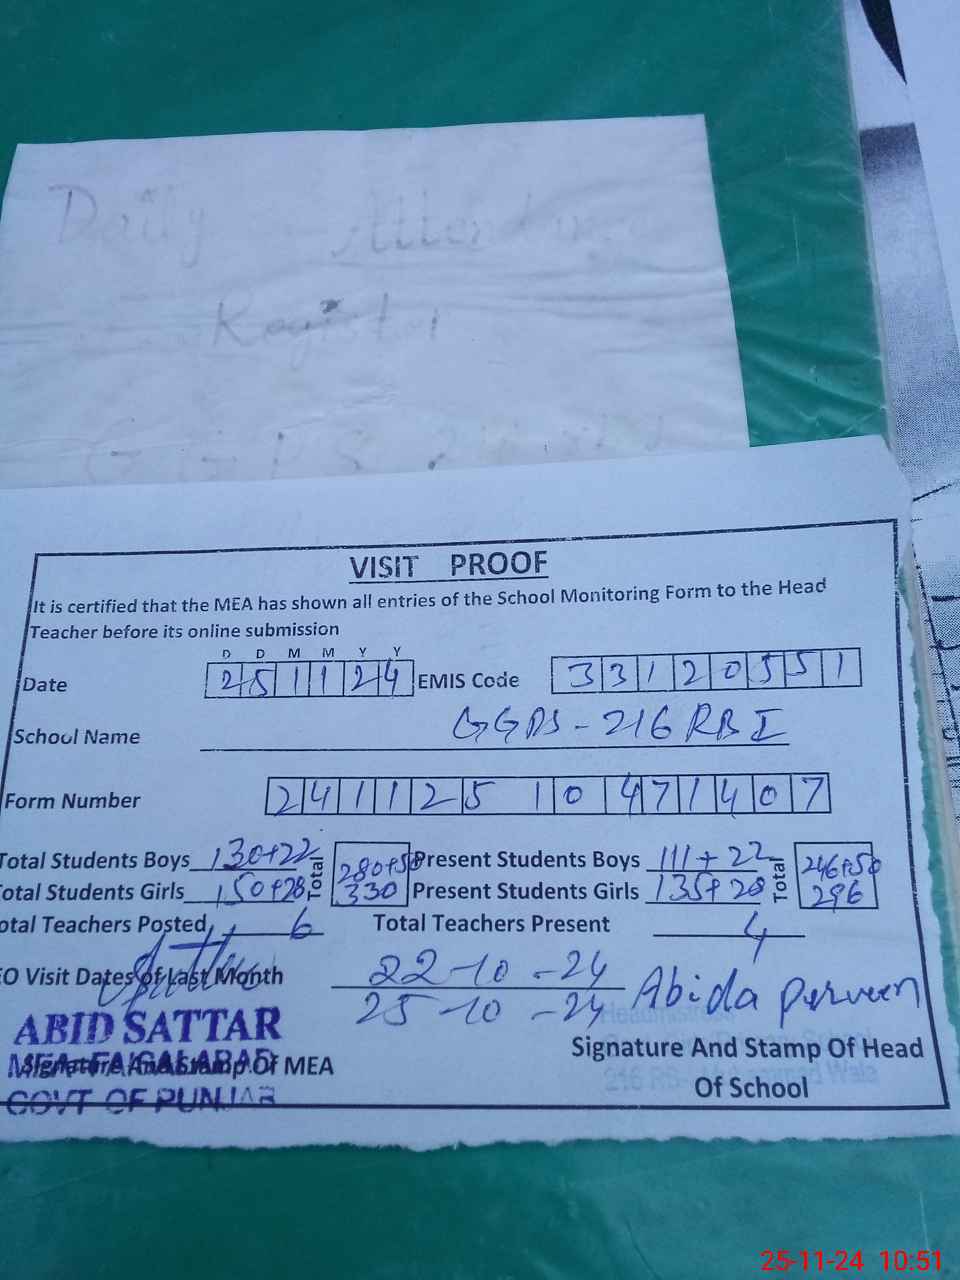 Daily Attendance
Register
VISIT PROOF
It is certified that the MEA has shown all entries of the School Monitoring Form to the Head
Teacher before its online submission
D D M M Y Y
Date 251124 EMIS Code 33120551
School Name GGPS-216 RB I
Form Number 24112510471407
Total Students Boys 130+22 Total 280+50 Present Students Boys 111+22 Total 246+50
otal Students Girls 150+28 330 Present Students Girls 135+28 296
otal Teachers Posted 6 Total Teachers Present 4
EO Visit Dates of Last Month 22-10-24
25-10-24 Abida perveen
ABID SATTAR
MEA-FAISALABAD
Signature And Stamp Of MEA Signature And Stamp Of Head
GOVT OF PUNJAB Of School
25-11-24 10:51